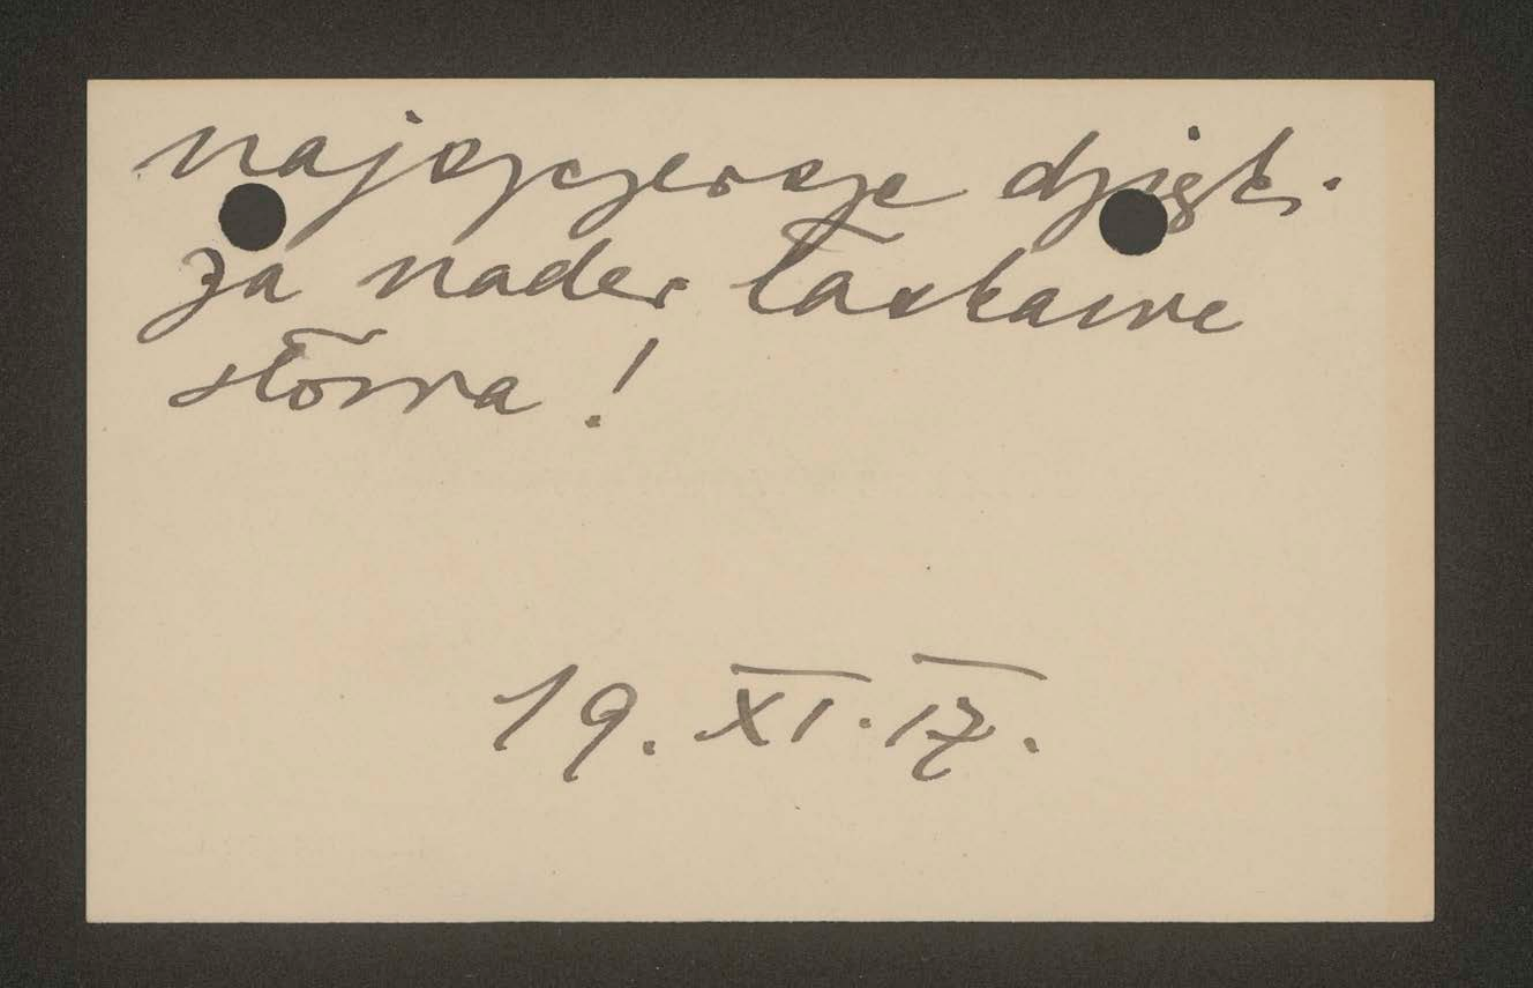 najszczersze dzięki
za nader łaskawe
słowa!
19. XI. 17.